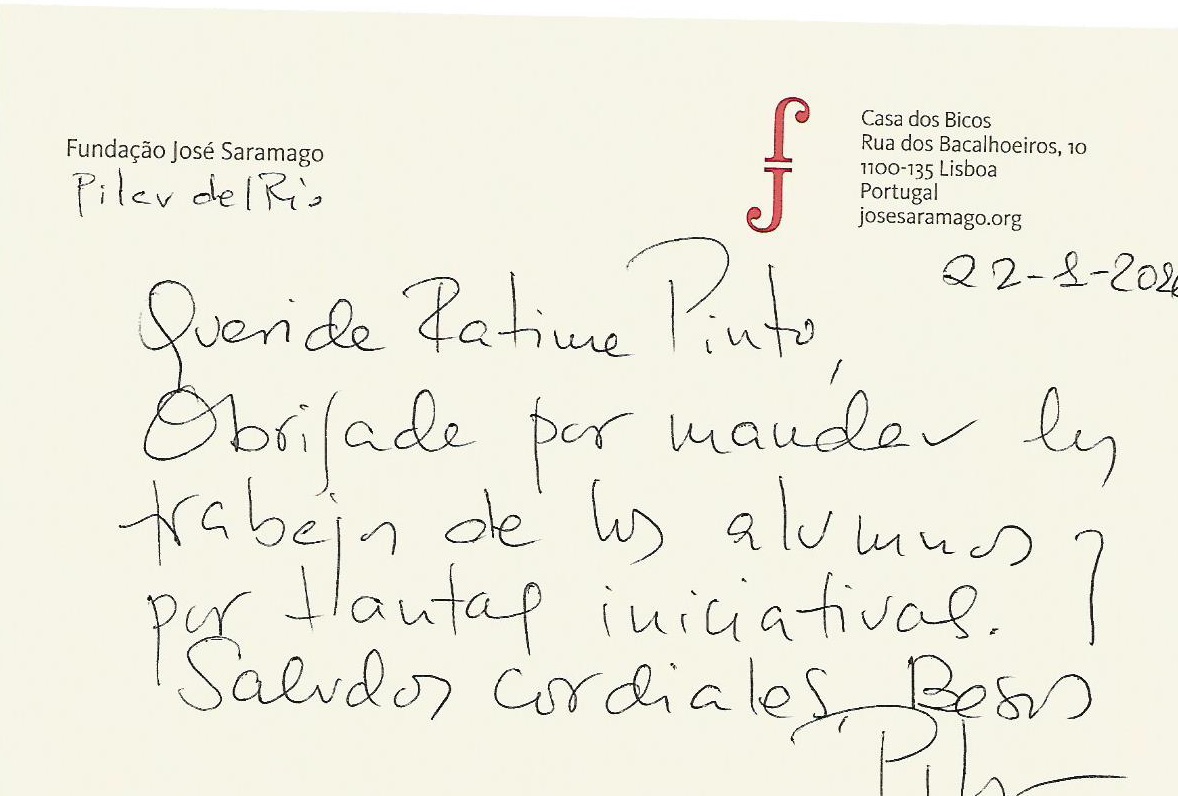 Fundação José Saramago
Pilar del Río
Casa dos Bicos
Rua dos Bacalhoeiros, 10
1100-135 Lisboa
Portugal
josesaramago.org
22-1-202
Querida Fatima Pinto,
Obrigada por mandar los
trabajos de los alumnos y
por tantas iniciativas.
Saludos cordiales, Besos
Pilar